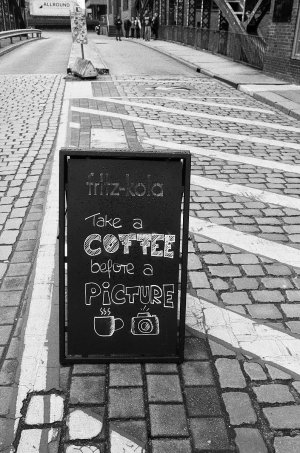 ALLROUND
fritz-kola
Take a
COFFEE
before a
PICTURE